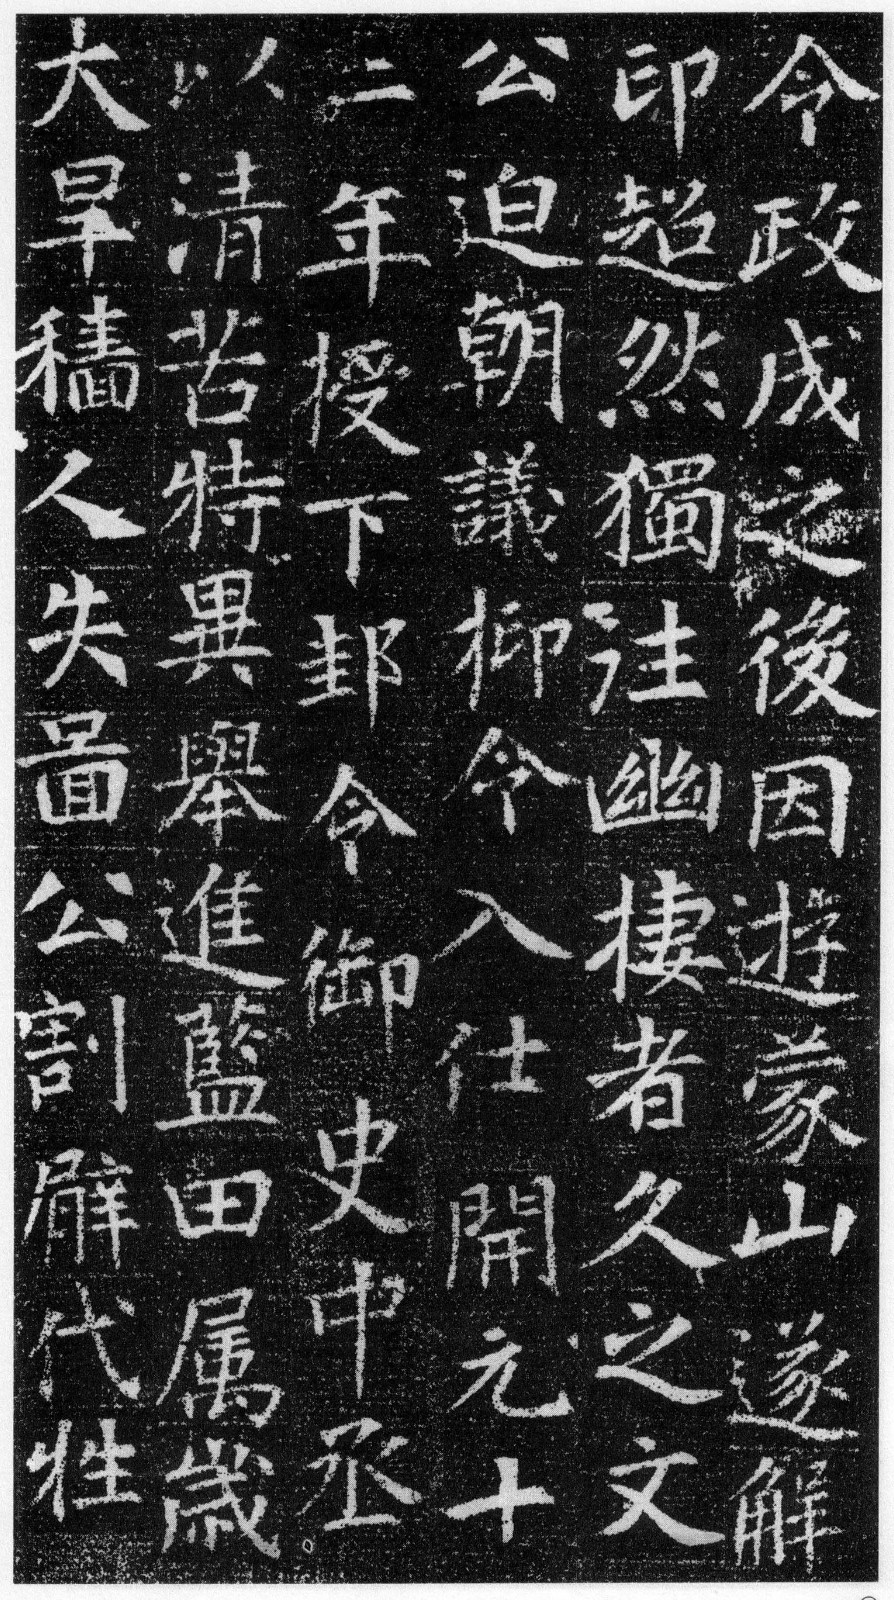 令政成之後因遊蒙山遂解
印超然獨往幽棲者久之文
公迫朝議抑令入仕開元十
二年授下邽令御史中丞
以清苦特異舉進藍田属歳
大旱穡人失啚公割臂代牲